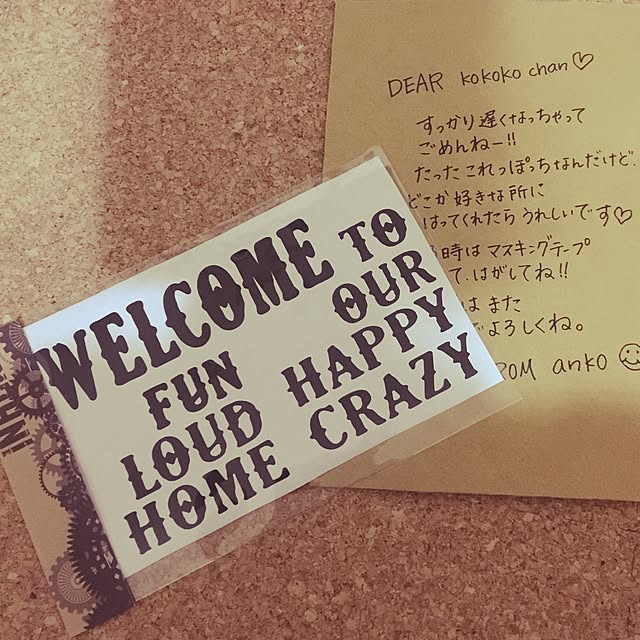 DEAR kokoko chan♡
すっかり遅くなっちゃって
ごめんねー!!
たったこれっぽっちなんだけど、
どこか好きな所に
はってくれたらうれしいです♡
時は マスキングテープ
て、はがしてね!!
は また
よろしくね。
ROM anko ☺
WELCOME TO
OUR
FUN HAPPY
LOUD CRAZY
HOME